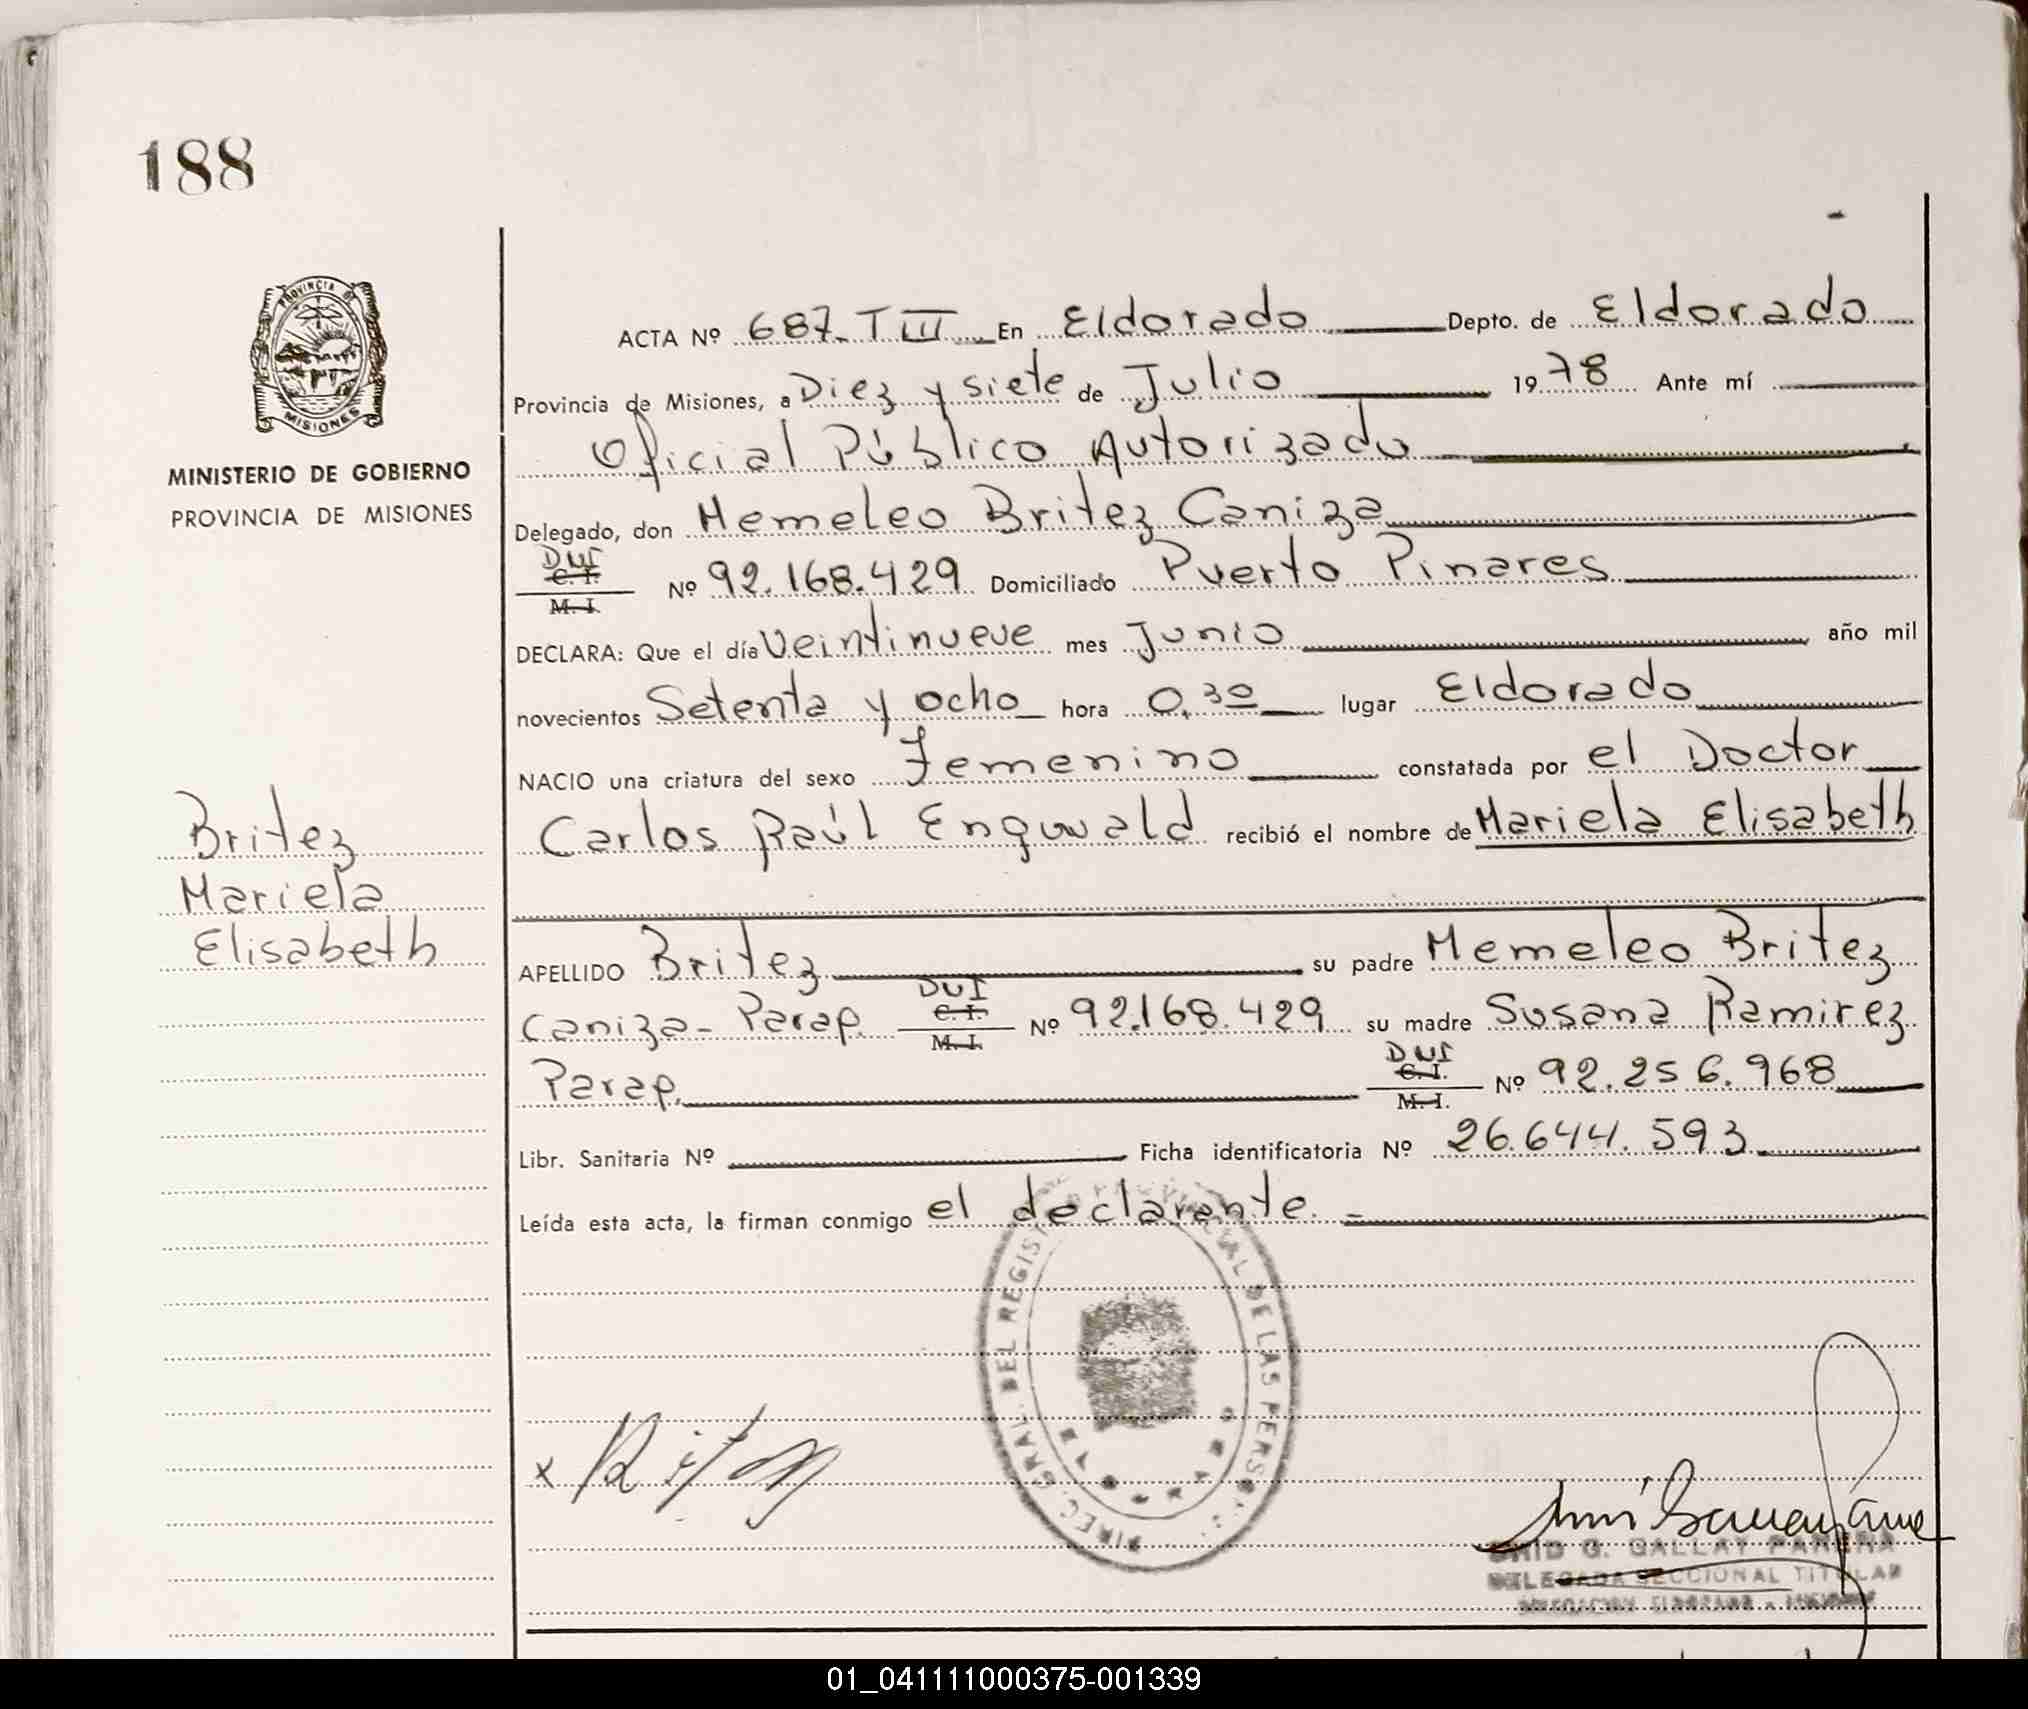 188
PROVINCIA DE
MISIONES
MINISTERIO DE GOBIERNO
PROVINCIA DE MISIONES
Britez
Mariela
Elisabeth
ACTA Nº 687. T III En Eldorado Depto. de Eldorado
Provincia de Misiones, a Diez y siete de Julio 1978 Ante mí
Oficial Público Autorizado
Delegado, don Memeleo Britez Caniza
DNI
C. I.
M. I. Nº 92.168.429 Domiciliado Puerto Pinares
DECLARA: Que el día Veintinueve mes Junio año mil
novecientos Setenta y ocho hora 0,30 lugar Eldorado
NACIO una criatura del sexo Femenino constatada por el Doctor
Carlos Raúl Enguvald recibió el nombre de Mariela Elisabeth
APELLIDO Britez su padre Memeleo Britez
DNI
Caniza - Parag. C. I. M. I. Nº 92.168.429 su madre Susana Ramirez
DNI
Parag. C. I. M. I. Nº 92.256.968
Libr. Sanitaria Nº Ficha identificatoria Nº 26.644.593
Leída esta acta, la firman conmigo el declarante. -
DIREC. GRAL. DEL REGISTRO DE LAS PERS
x
G. GALLAY
DELEGADA SECCIONAL TITULAR
01_041111000375-001339